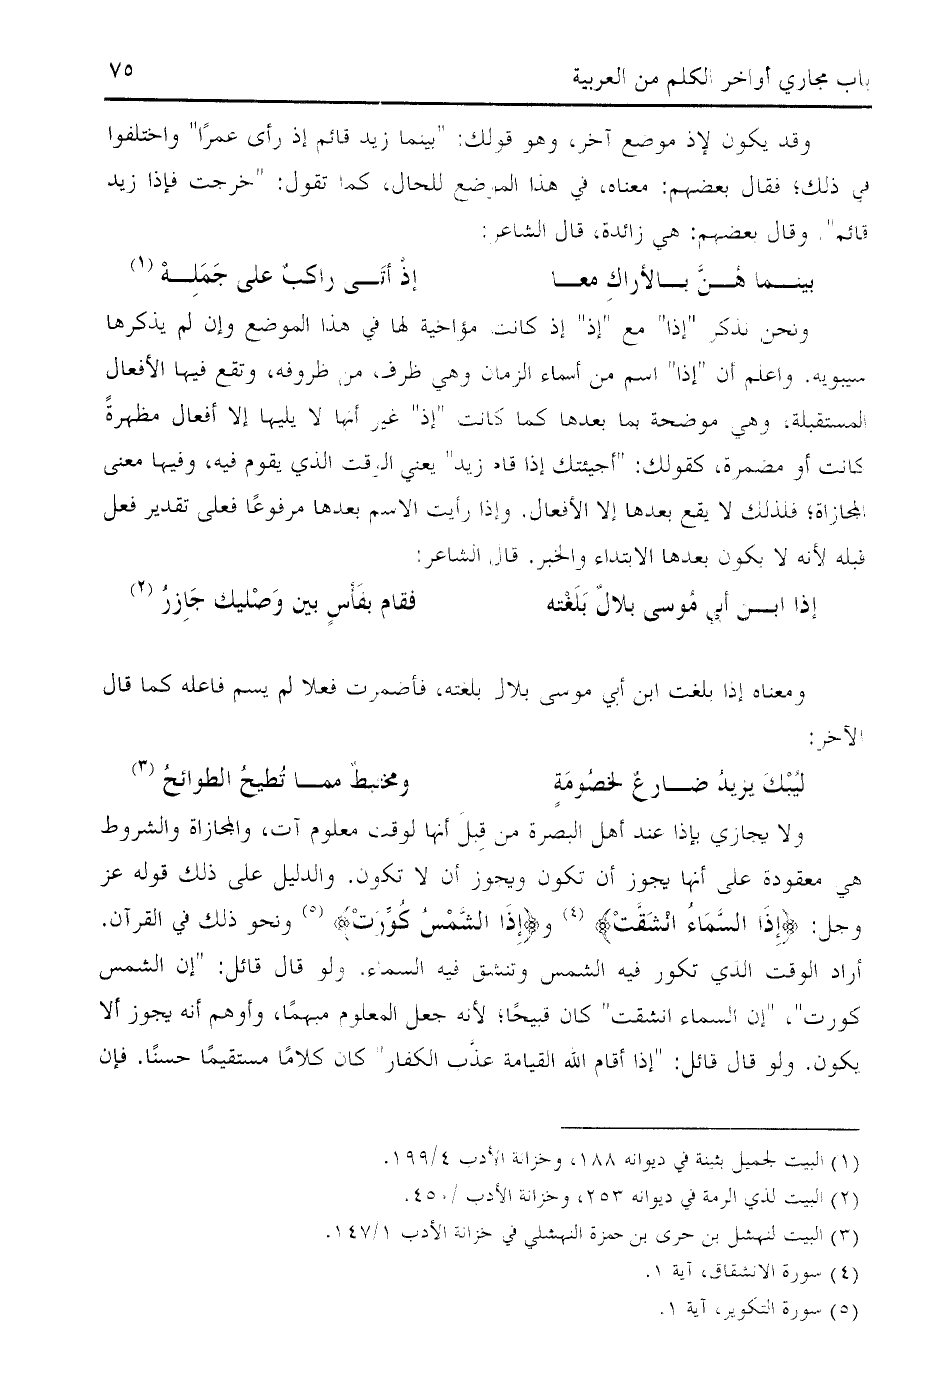 باب مجاري أواخر الكلم من العربية ٧٥
وقد يكون لإذ موضع آخر، وهو قولك: "بينما زيد قائم إذ رأى عمرًا" واختلفوا
في ذلك؛ فقال بعضهم: معناه، في هذا الموضع للحال، كما تقول: "خرجت فإذا زيد
قائم". وقال بعضهم: هي زائدة، قال الشاعر:
بينـــما هُنَّ بـــالأراكِ معـــا إذْ أتَـــى راكبٌ على جَمَلِـــهْ (١)
ونحن نذكر "إذا" مع "إذ" إذ كانت مؤاخية لها في هذا الموضع وإن لم يذكرها
سيبويه. واعلم أن "إذا" اسم من أسماء الزمان وهي ظرف من ظروفه، وتقع فيها الأفعال
المستقبلة، وهي موضحة بما بعدها كما كانت "إذ" غير أنها لا يليها إلا أفعال مظهرةً
كانت أو مضمرة، كقولك: "أجيئتك إذا قام زيد" يعني الوقت الذي يقوم فيه، وفيها معنى
المجازاة؛ فلذلك لا يقع بعدها إلا الأفعال. وإذا رأيت الاسم بعدها مرفوعًا فعلى تقدير فعل
قبله لأنه لا يكون بعدها الابتداء والخبر. قال الشاعر:
إذا ابـــن أبي مُوسى بلالٌ بَلَغْته فقام بفَأْسٍ بين وَصْليك جَازِرُ (٢)
ومعناه إذا بلغت ابن أبي موسى بلال بلغته، فأضمرت فعلا لم يسم فاعله كما قال
الآخر:
لَيُبْكَ يزيدُ ضـــارعٌ لخصُومَةٍ ومختبطٌ ممـــا تُطيحُ الطوائحُ (٣)
ولا يجازي بإذا عند أهل البصرة من قِبلَ أنها لوقت معلوم آت، والمجازاة والشروط
هي معقودة على أنها يجوز أن تكون ويجوز أن لا تكون. والدليل على ذلك قوله عز
وجل: ﴿إِذَا السَّمَاءُ انْشَقَّتْ﴾ (٤) و﴿إِذَا الشَّمْسُ كُوِّرَتْ﴾ (٥) ونحو ذلك في القرآن.
أراد الوقت الذي تكور فيه الشمس وتنشق فيه السماء. ولو قال قائل: "إن الشمس
كورت"، "إن السماء انشقت" كان قبيحًا؛ لأنه جعل المعلوم مبهمًا، وأوهم أنه يجوز ألا
يكون. ولو قال قائل: "إذا أقام الله القيامة عذَّب الكفار" كان كلامًا مستقيمًا حسنًا. فإن
(١) البيت لجميل بثينة في ديوانه ١٨٨، وخزانة الأدب ١٩٩/٤.
(٢) البيت لذي الرمة في ديوانه ٢٥٣، وخزانة الأدب /٤٥٠.
(٣) البيت لنهشل بن حرى بن حمزة النهشلي في خزانة الأدب ١٤٧/١.
(٤) سورة الانشقاق، آية ١.
(٥) سورة التكوير، آية ١.